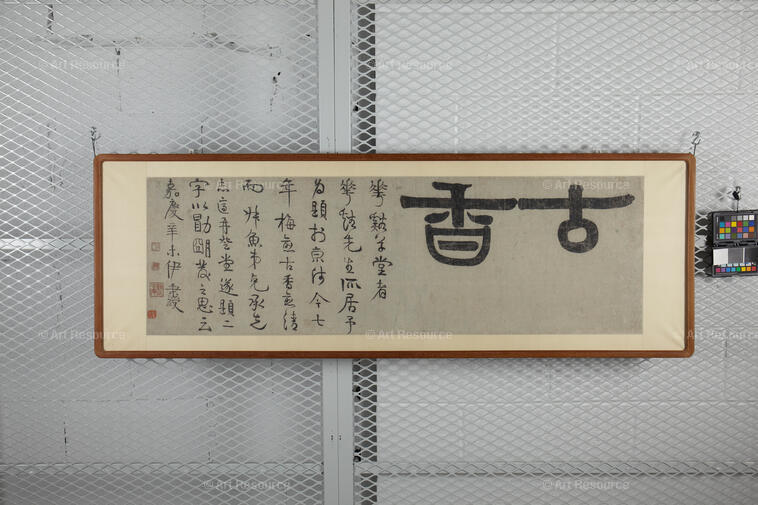 古香
華谿草堂者
華谿先生所居予
為題於京師今七
年梅古香
而魚弟兄承先
志再登堂遂題二
字以勖朙發之思云
嘉慶辛未伊秉綬
© Art Resource
© Art Resource
© Art Resource
© Art Resource
© Art Resource
© Art Resource
© Art Resource
© Art Resource